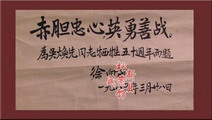 赤胆忠心,英勇善战。
爲吴焕先同志牺牲五十週年而题
徐向前
一九八五年三月廿八日